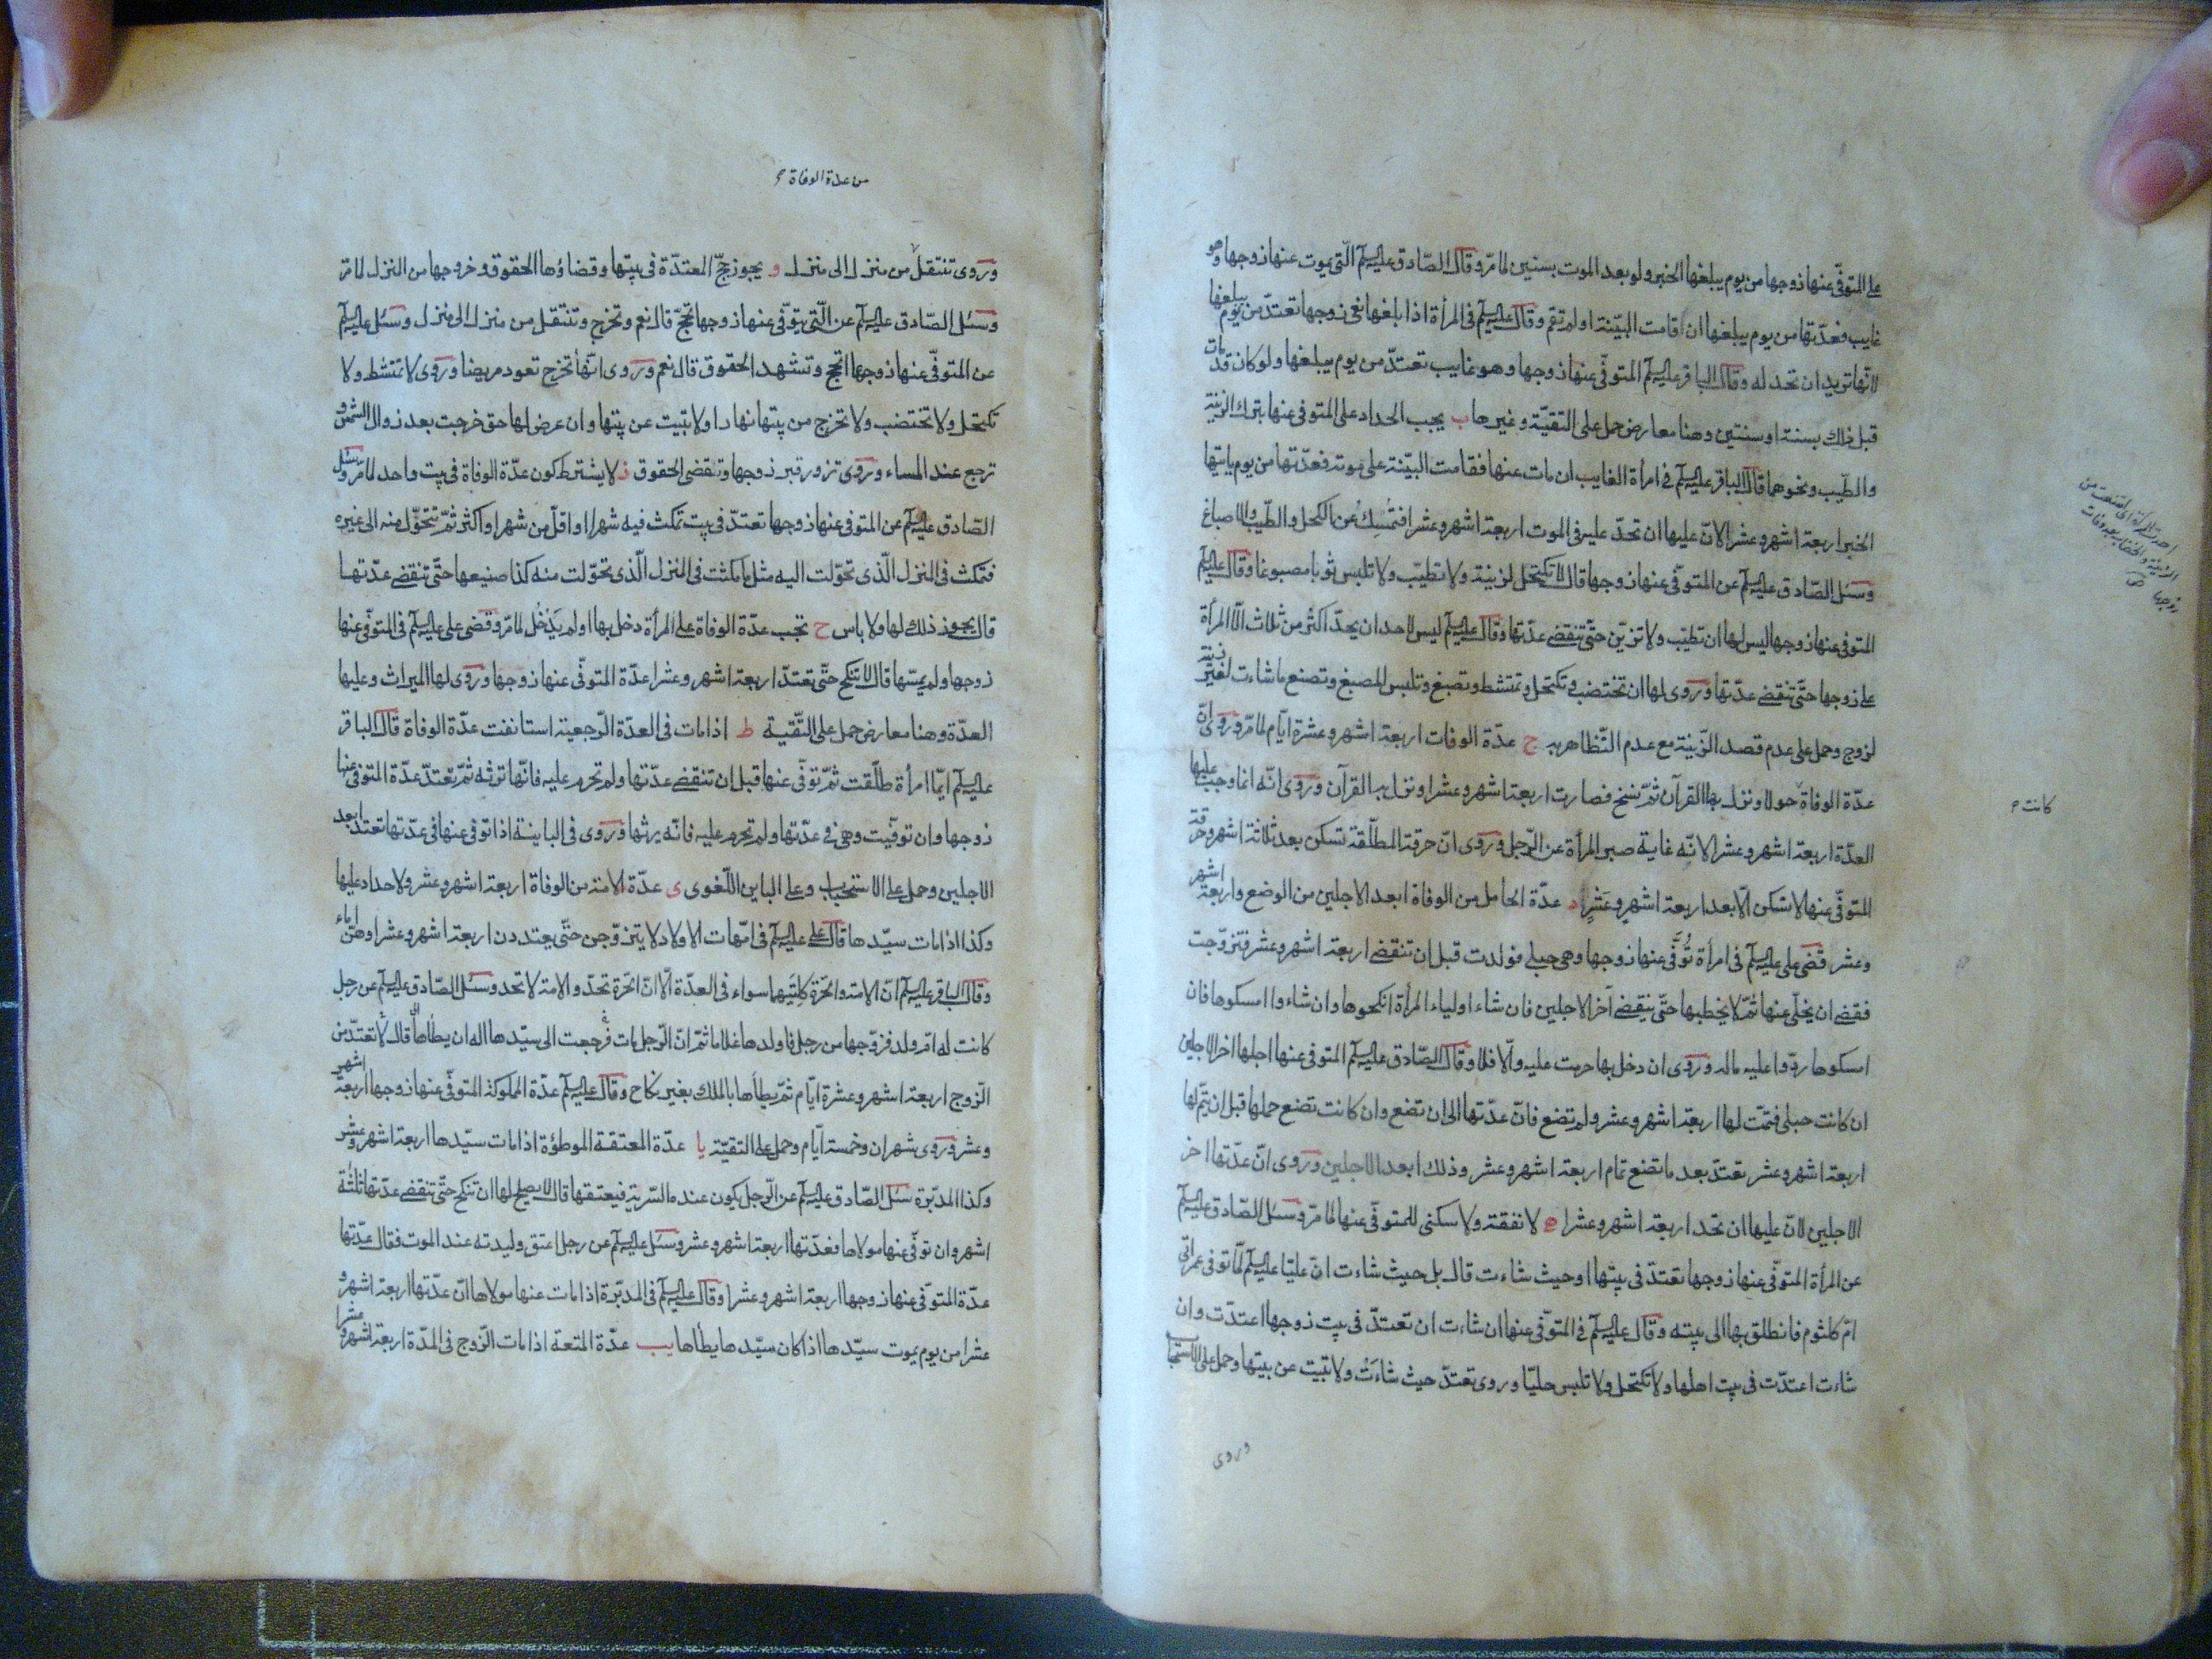 على المتوفّى عنها زوجها من يوم يبلغها الخبر ولو بعد الموت بسنين لما مرّ وقال الصّادق عليه السلم الّتى يموت عنها زوجها وهو
غايب فعدّتها من يوم يبلغها ان اقامت البيّنة او لم تقم وقال عليه السلم فى المرأة اذا بلغها نعى زوجها تعتدّ من يوم يبلغها
لانّها تريد ان تحد له وقال الباقر عليه السلم المتوفّى عنها زوجها وهو غايب تعتدّ من يوم يبلغها ولو كان قد مات
قبل ذلك بسنة او سنتين وهنا معارض حمل على التقيّة وغيرها ب يجب الحداد على المتوفى عنها بترك الزينة
والطّيب ونحوهما قال الباقر عليه السلم فى امرأة الغايب ان مات عنها فقامت البيّنة على موته فعدّتها من يوم ياتيها
الخبر اربعة اشهر وعشرا لانّ عليها ان تحدّ عليه فى الموت اربعة اشهر وعشرا فتمسك عن الكحل والطّيب والاصباغ
وسئل الصّادق عليه السلم عن المتوفّى عنها زوجها قال لا تكتحل لزينة ولا تطيّب ولا تلبس ثوبا مصبوغا وقال عليه السلم
المتوفى عنها زوجها ليس لها ان تطيّب ولا تزيّن حتّى تنقضى عدّتها وقال عليه السلم ليس لاحد ان يحدّ اكثر من ثلاث الّا المرأة
على زوجها حتّى تنقضى عدّتها وروى لها ان تختضب وتكتحل وتمتشط وتصبغ وتلبس المصبغ وتصنع ما شاءت لغير زينة
لزوج وحمل على عدم قصد الزّينة مع عدم التّظاهر به ج عدّة الوفات اربعة اشهر وعشرة ايّام لما مرّ وروى انّ
عدّة الوفاة حولا ونزل بها القرآن ثمّ نسخ فصارت اربعة اشهر وعشرا ونزل بها القرآن وروى انّه انما وجبت عليها
كانت م
العدّة اربعة اشهر وعشرا لانّه غاية صبر المرأة عن الرّجل وروى انّ حرقة المطلّقة تسكن بعد ثلاثة اشهر وحرقة
المتوفّى عنها لا تسكن الّا بعد اربعة اشهر وعشر د عدّة الحامل من الوفاة ابعد الاجلين من الوضع واربعة اشهر
وعشر قضى على عليه السلم فى امرأة تُوُفّى عنها زوجها وهى حبلى فولدت قبل ان تنقضى اربعة اشهر وعشر فتزوّجت
فقضى ان يخلّى عنها ثمّ لا يخطبها حتّى ينقضى آخر الاجلين فان شاء اولياء المرأة انكحوها وان شاءوا امسكوها فان
امسكوها ردّوا عليه ماله وروى ان دخل بها حرمت عليه والّا فلا وقال الصّادق عليه السلم المتوفى عنها اجلها اخر الاجلين
ان كانت حبلى فتمّت لها اربعة اشهر وعشر ولم تضع فانّ عدّتها الى ان تضع وان كانت تضع حملها قبل ان يتمّ لها
اربعة اشهر وعشر تعتدّ بعد ما تضع تمام اربعة اشهر وعشر وذلك ابعد الاجلين وروى انّ عدّتها اخر
الاجلين لانّ عليها ان تحد اربعة اشهر وعشرا ه لا نفقة ولا سكنى للمتوفّى عنها لما مرّ وسئل الصّادق عليه السلم
عن المرأة المتوفّى عنها زوجها تعتدّ فى بيتها او حيث شاءت قال بل حيث شاءت انّ عليّا عليه السلم لمّا توفى عمر اتى
امّ كلثوم فانطلق بها الى بيته وقال عليه السلم فى المتوفّى عنها ان شاءت ان تعتدّ فى بيت زوجها اعتدّت وان
شاءت اعتدّت فى بيت اهلها ولا تكتحل ولا تلبس حليّا وروى تعتدّ حيث شاءت ولا تبيت عن بيتها وحمل على الاستحباب
وروى
من عدة الوفاة م
وروى تنتقل من منزل الى منزل و يجوز حجّ المعتدّة فى بيتها وقضاؤها الحقوق وخروجها من المنزل لما مرّ
وسئل الصّادق عليه السلم عن الّتى يتوفّى عنها زوجها تحجّ قال نعم وتخرج وتنتقل من منزل الى منزل وسئل عليه السلم
عن المتوفّى عنها زوجها اتحج وتشهد الحقوق قال نعم وروى انّها تخرج تعود مريضا وروى لا تمتشط ولا
تكتحل ولا تختضب ولا تخرج من بيتها نهارا ولا تبيت عن بيتها وان عرض لها حق خرجت بعد زوال الشمس و
ترجع عند المساء وروى تزور قبر زوجها وتقضى الحقوق ز لا يشترط كون عدّة الوفاة فى بيت واحد لما مرّ وسئل
الصّادق عليه السلم عن المتوفى عنها زوجها تعتدّ فى بيت تمكث فيه شهرا او اقلّ من شهر او اكثر ثمّ تتحوّل منه الى غيره
فتمكث فى المنزل الّذى تحوّلت اليه مثل ما مكثت فى المنزل الّذى تحوّلت منه كذا صنيعها حتّى تنقضى عدّتها
قال يجوز ذلك لها ولا باس ح تجب عدّة الوفاة على المرأة دخل بها او لم يدخل لما مرّ وقضى على عليه السلم فى المتوفّى عنها
زوجها ولم يمسّها قال لا تنكح حتّى تعتدّ اربعة اشهر وعشرا عدّة المتوفّى عنها زوجها وروى لها الميراث وعليها
العدّة وهنا معارض حمل على التّقية ط اذا مات فى العدّة الرّجعية استانفت عدّة الوفاة قال الباقر
عليه السلم ايّما امرأة طلّقت ثمّ توفّى عنها قبل ان تنقضى عدّتها ولم تحرم عليه فانّها ترثه ثمّ تعتدّ عدّة المتوفى عنها
زوجها وان توفّيت وهى فى عدّتها ولم تحرم عليه فانّه يرثها وروى فى الباينة اذا توفى عنها فى عدّتها تعتد ابعد
الاجلين وحمل على الاستحباب وعلى الباين اللّغوى ى عدّة الامة من الوفاة اربعة اشهر وعشر ولا حداد عليها
وكذا اذا مات سيّدها قال على عليه السلم فى امّهات الاولاد لا يتزوّجن حتّى يعتددن اربعة اشهر وعشرا وهنّ اماء
وقال الباقر عليه السلم انّ الامة والحرّة كلتيهما سواء فى العدّة الّا انّ الحرّة تحدّ والامة لا تحد وسئل الصّادق عليه السلم عن رجل
كانت له امّ ولد فزوّجها من رجل فاولدها غلاما ثمّ انّ الرّجل مات فرجعت الى سيّدها اله ان يطاها قال لا تعتدّ من
الزّوج اربعة اشهر وعشرة ايّام ثمّ يطأها بالملك بغير نكاح وقال عليه السلم عدّة المملوكة المتوفّى عنها زوجها اربعة اشهر
وعشر وروى شهران وخمسة ايّام وحمل على التقيّة يا عدّة المعتقة الموطؤة اذا مات سيّدها اربعة اشهر وعشر
وكذا المدبّرة سئل الصّادق عليه السلم عن الرّجل يكون عنده السّرية فيعتقها قال لا يصلح لها ان تنكح حتّى تنقضى عدّتها ثلثة
اشهر وان توفّى عنها مولاها فعدّتها اربعة اشهر وعشر وسئل عليه السلم عن رجل اعتق وليدته عند الموت فقال عدّتها
عدّة المتوفّى عنها زوجها اربعة اشهر وعشرا وقال عليه السلم فى المدبّرة اذا مات عنها مولاها انّ عدّتها اربعة اشهر و
عشرا من يوم يموت سيّدها اذا كان سيّدها يطاها يب عدّة المتعة اذا مات الزّوج فى المدّة اربعة اشهر وعشرا